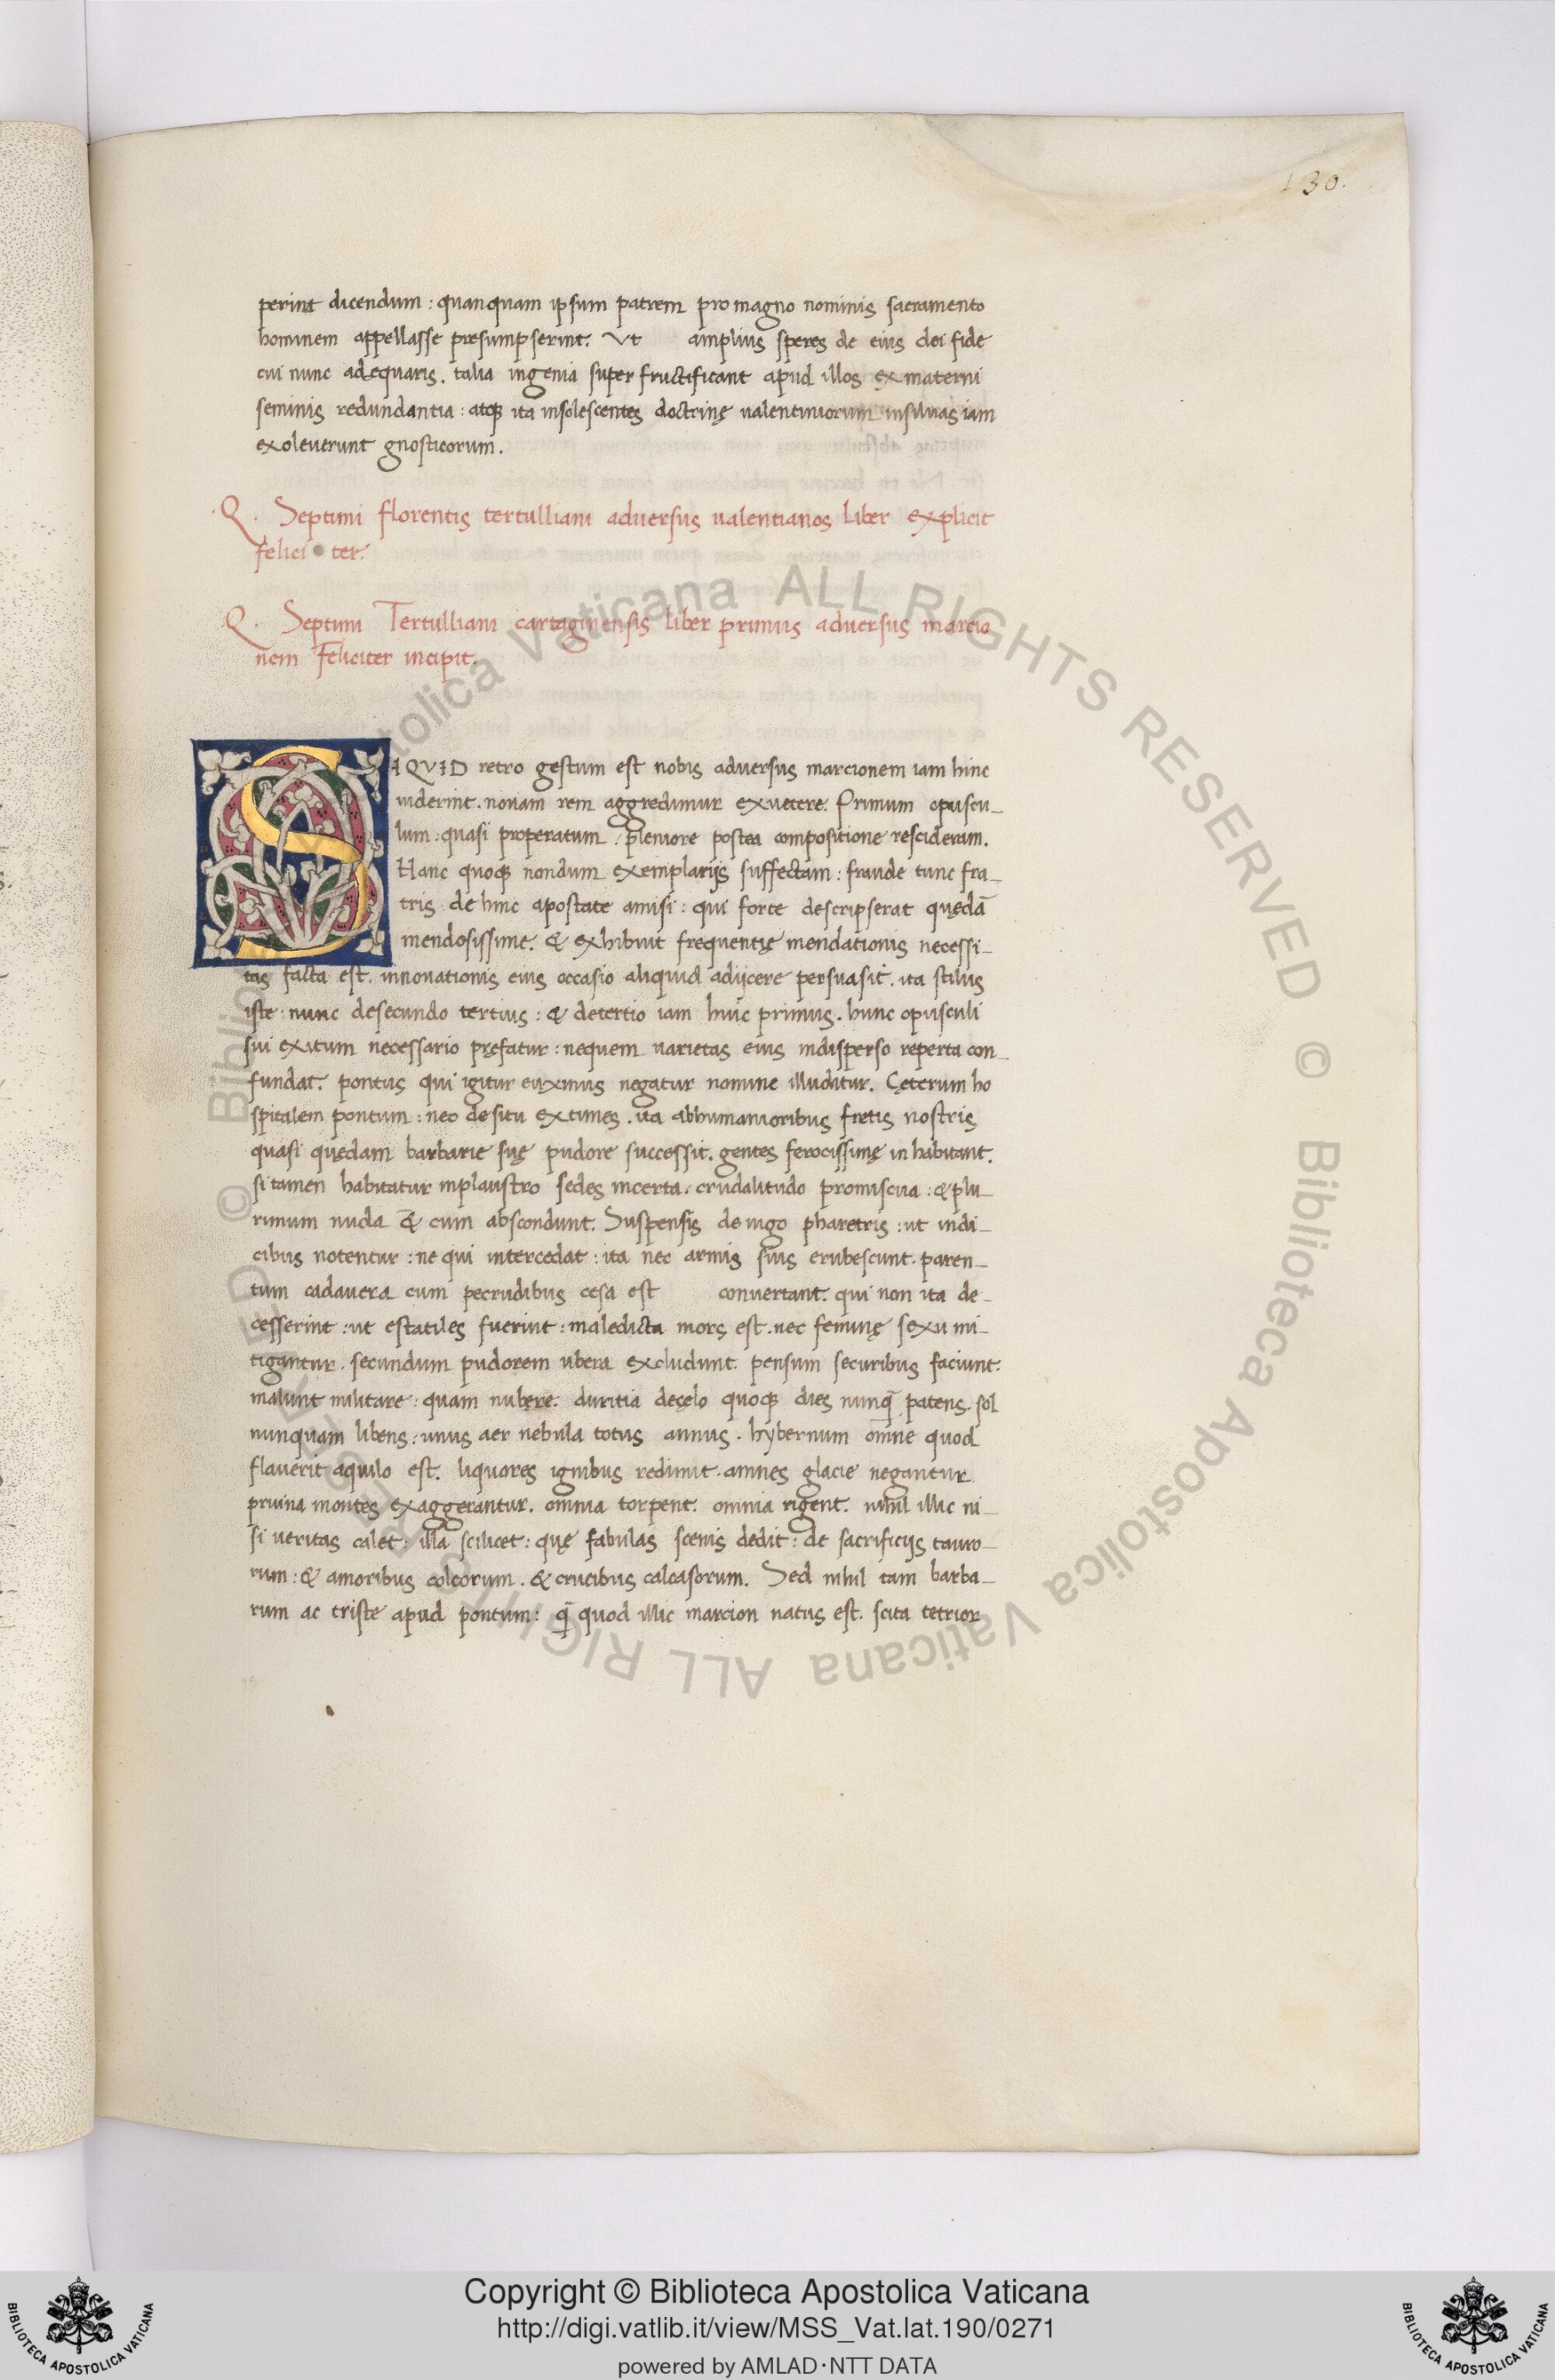 130.
perint dicendum : quanquam ipsum patrem pro magno nominis sacramento
hominem appellasse presumpserint. Vt amplius speres de eius dei fide
cui nunc adequaris. talia ingenia super fructificant apud illos ex materni
seminis redundantia : atqꝫ ita insolescentes doctrinę ualentiniorum insiluas iam
exoleuerunt gnosticorum.
.Q. Septimi florentis tertulliani aduersus ualentianos liber explicit
felici ter.
Q. Septimi Tertulliani cartaginensis liber primus aduersus marcio
nem Feliciter incipit.
SIQVID retro gestum est nobis aduersus marcionem iam hinc
uiderint. nouam rem aggredimur exuetere. Primum opuscu-
lum : quasi properatum . pleniore postea compositione rescideram.
Hanc quoqꝫ nondum exemplarijs suffectam : fraude tunc fra-
tris de hinc apostate amisi : qui forte descripserat quędā
mendosissime. & exhibuit frequentię mendationis necessi-
tas facta est. innouationis eius occasio aliquid adijcere persuasit. ita stilus
iste : nunc desecundo tertius : & detertio iam huic primus. hunc opusculi
sui exitum necessario pręfatur : nequem uarietas eius indisperso reperta con-
fundat. pontus qui igitur euxinus negatur nomine illuditur. Cęterum ho
spitalem pontum : nec de situ extimes. ita abhumanioribus fretis nostris
quasi quędam barbarie suę pudore successit. gentes ferocissimę in habitant.
si tamen habitatur inplaustro sedes incerta. crudalitudo promiscua : & plu-
rimum nuda & cum abscondunt. Suspensis de iugo pharetris : ut indi-
cibus notentur : ne qui intercedat : ita nec armis suis erubescunt. paren-
tum cadauera cum pecrudibus cesa est conuertant. qui non ita de-
cesserint : ut estatiles fuerint : maledicta mors est. nec feminę sexu mi-
tigantur. secundum pudorem ubera excludunt. pensum securibus faciunt.
malunt militare : quam nubere. duritia decęlo quoqꝫ dies nunq̄ patens. sol
nunquam libens : unus aer nebula totus annus. hybernum omne quod
flauerit aquilo est. liquores ignibus redimit. amnes glacie negantur
pruina montes exaggerantur. omnia torpent. omnia rigent. nihil illic ni-
si ueritas calet : illa scilicet : quę fabulas scenis dedit : de sacrificijs tauro-
rum : & amoribus colcorum. & crucibus calcasorum. Sed nihil tam barba-
rum ac triste apud pontum : q̄ quod illic marcion natus est. scita tetrior
© Biblioteca Apostolica Vaticana ALL RIGHTS RESERVED © Biblioteca Apostolica Vaticana ALL RIGHTS RESERVED
Copyright © Biblioteca Apostolica Vaticana
http://digi.vatlib.it/view/MSS_Vat.lat.190/0271
powered by AMLAD·NTT DATA
BIBLIOTECA APOSTOLICA VATICANA
BIBLIOTECA APOSTOLICA VATICANA